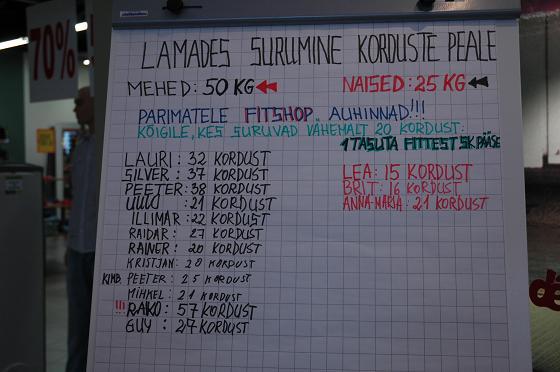 70%
LAMADES SURUMINE KORDUSTE PEALE
MEHED: 50 KG
NAISED: 25 KG
PARIMATELE FITSHOP AUHINNAD!!!
KÕIGILE, KES SURUVAD VÄHEMALT 20 KORDUST:
1 TASUTA FITTEST SK PÄÄSE
LAURI: 32 KORDUST
SILVER: 37 KORDUST
PEETER: 38 KORDUST
: 21 KORDUST
ILLIMAR: 22 KORDUST
RAIDAR: 27 KORDUST
RAINER: 20 KORDUST
KRISTJAN: 20 KORDUST
PEETER: 25 KORDUST
MIHKEL: 21 KORDUST
!!! RAKO: 57 KORDUST
GUY: 27 KORDUST
LEA: 15 KORDUST
BRIT: 16 KORDUST
ANNA-MARIA: 21 KORDUST